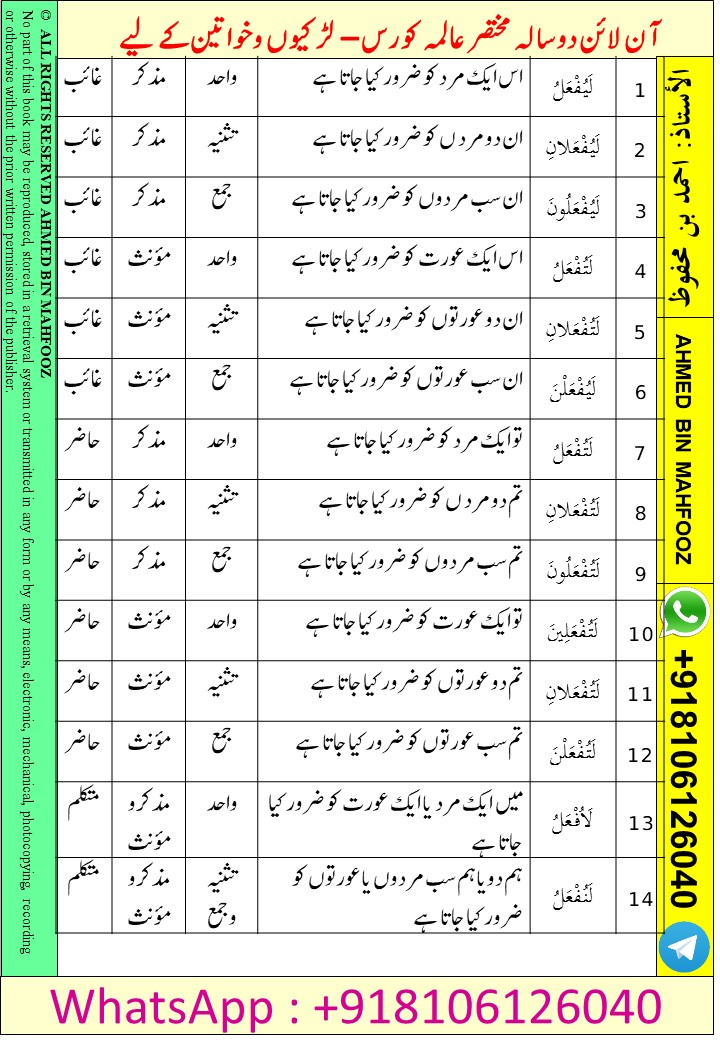 آن لائن دو سالہ مختصر عالمہ کورس – لڑکیوں و خواتین کے لیے
1 لَيُفْعَلُ اس ایک مرد کو ضرور کیا جاتا ہے واحد مذکر غائب
2 لَيُفْعَلانِ ان دو مردں کو ضرور کیا جاتا ہے تثنیہ مذکر غائب
3 لَيُفْعَلُونَ ان سب مردوں کو ضرور کیا جاتا ہے جمع مذکر غائب
4 لَتُفْعَلُ اس ایک عورت کو ضرور کیا جاتا ہے واحد مؤنث غائب
5 لَتُفْعَلانِ ان دو عورتوں کو ضرور کیا جاتا ہے تثنیہ مؤنث غائب
6 لَيُفْعَلْنَ ان سب عورتوں کو ضرور کیا جاتا ہے جمع مؤنث غائب
7 لَتُفْعَلُ تو ایک مرد کو ضرور کیا جاتا ہے واحد مذکر حاضر
8 لَتُفْعَلانِ تم دو مردں کو ضرور کیا جاتا ہے تثنیہ مذکر حاضر
9 لَتُفْعَلُونَ تم سب مردوں کو ضرور کیا جاتا ہے جمع مذکر حاضر
10 لَتُفْعَلِينَ تو ایک عورت کو ضرور کیا جاتا ہے واحد مؤنث حاضر
11 لَتُفْعَلانِ تم دو عورتوں کو ضرور کیا جاتا ہے تثنیہ مؤنث حاضر
12 لَتُفْعَلْنَ تم سب عورتوں کو ضرور کیا جاتا ہے جمع مؤنث حاضر
13 لَأُفْعَلُ میں ایک مرد یا ایک عورت کو ضرور کیا واحد مذکر و متکلم
جاتا ہے مؤنث
14 لَنُفْعَلُ ہم دو یا ہم سب مردوں یا عورتوں کو تثنیہ مذکر و متکلم
ضرور کیا جاتا ہے و جمع مؤنث
الأستاذ: احمد بن محفوظ
AHMED BIN MAHFOOZ
+918106126040
© ALL RIGHTS RESERVED AHMED BIN MAHFOOZ
No part of this book may be reproduced, stored in a retrieval system or transmitted in any form or by any means, electronic, mechanical, photocopying, recording
or otherwise without the prior written permission of the publisher.
WhatsApp : +918106126040